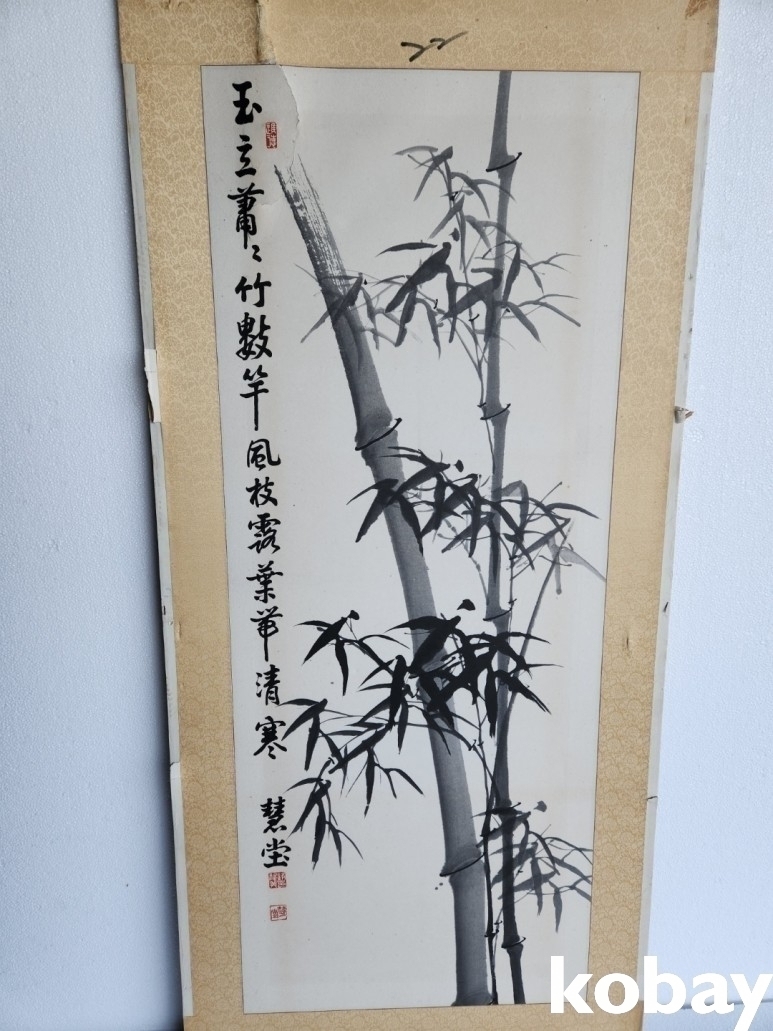 玉立蕭〻竹數竿風枝露葉带清寒
慧堂
22
kobay